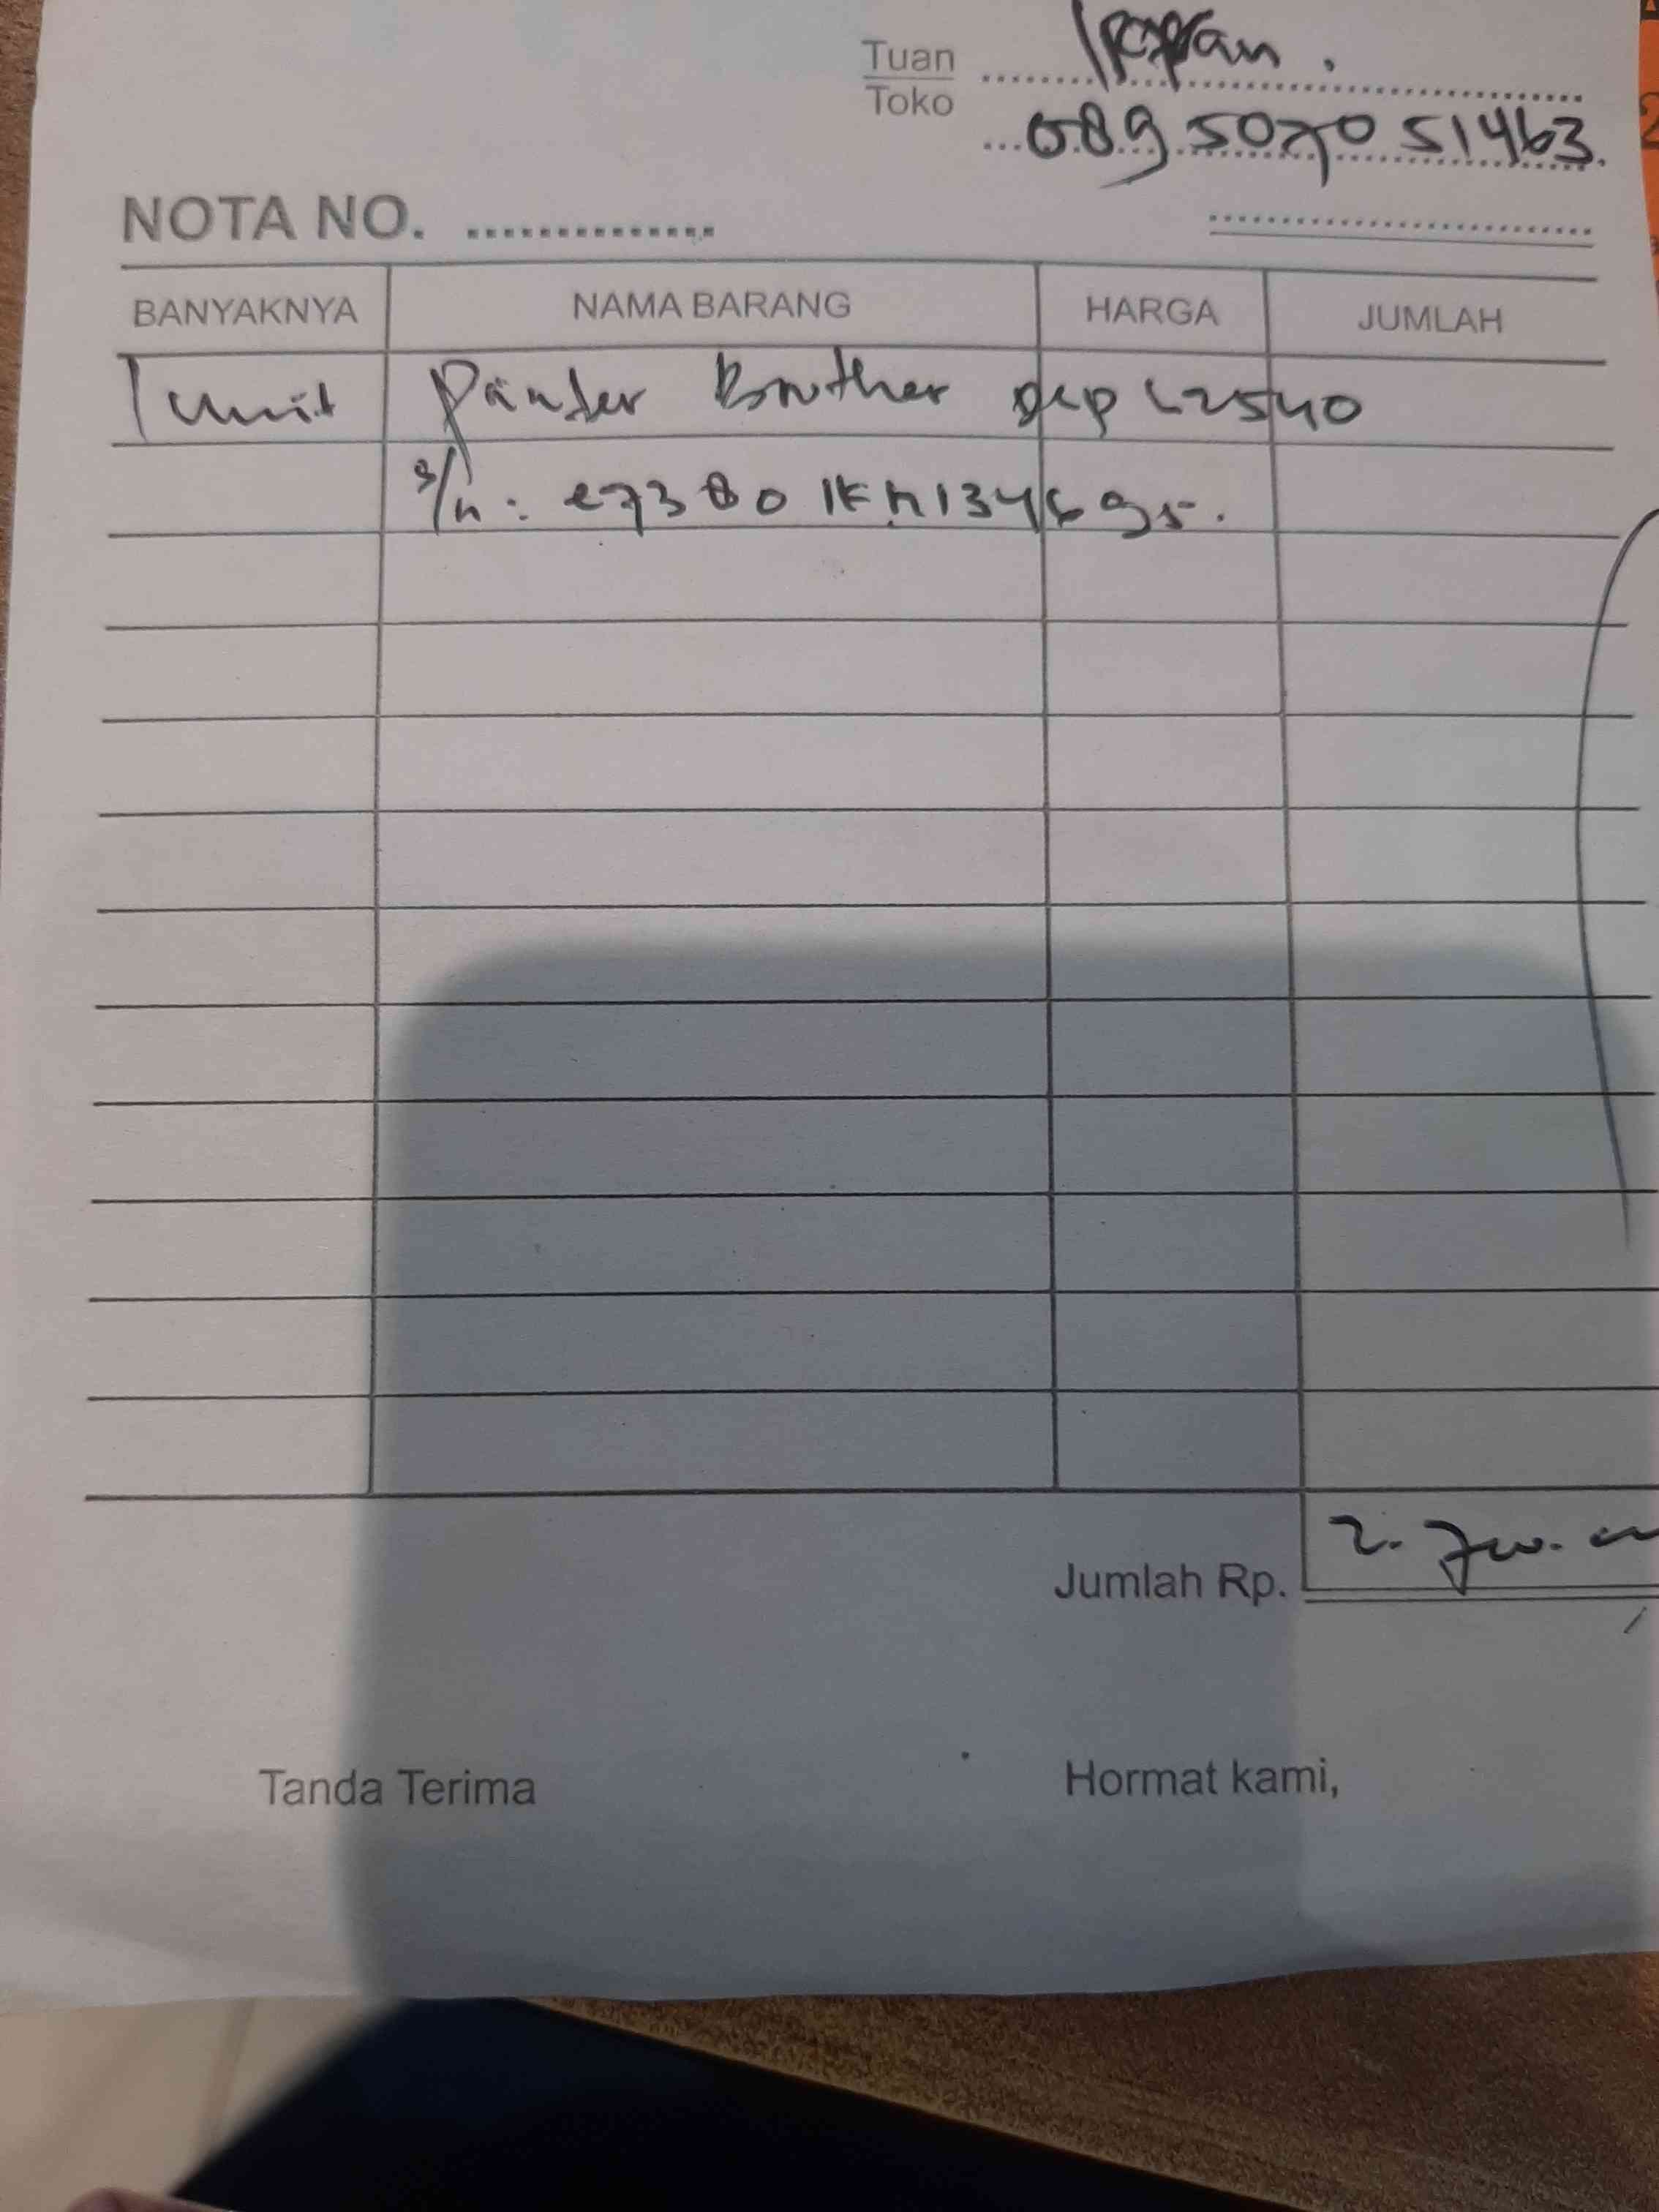 Tuan
Toko
089 5070 51463.
NOTA NO. ..............
BANYAKNYA NAMA BARANG HARGA JUMLAH
1 unit Printer Brother dcp L2540
s/n: e7380 1K n1346 95.
Jumlah Rp. 2.
Tanda Terima Hormat kami,